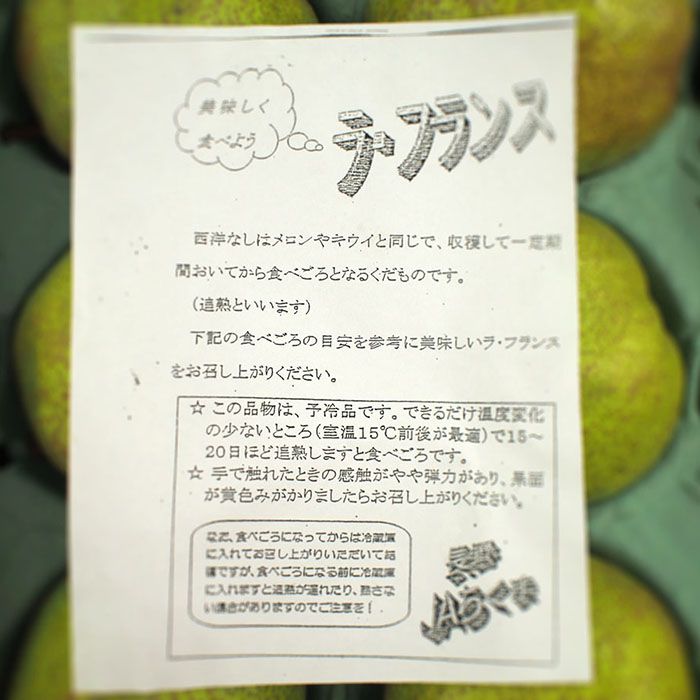 美味しく
食べよう
ラ・フランス
西洋なしはメロンやキウイと同じで、収穫して一定期
間おいてから食べごろとなるくだものです。
(追熟といいます)
下記の食べごろの目安を参考に美味しいラ・フランス
をお召し上がりください。
☆ この品物は、予冷品です。できるだけ温度変化
の少ないところ(室温15℃前後が最適)で15～
20日ほど追熟しますと食べごろです。
☆ 手で触れたときの感触がやや弾力があり、果面
が黄色みがかりましたらお召し上がりください。
なお、食べごろになってからは冷蔵庫
に入れてお召し上がりいただいて結
構ですが、食べごろになる前に冷蔵庫
に入れますと追熟が遅れたり、熟さな
い場合がありますのでご注意を!